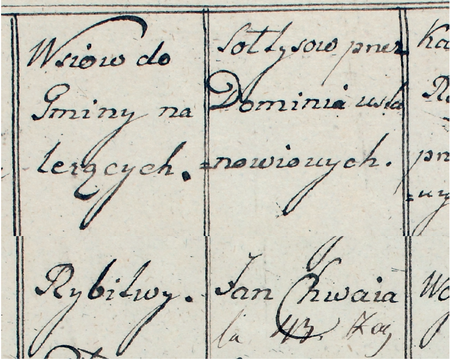 Wsiow do
Gminy na
leżących.
Sołtysow przez
Dominia usta
=nowionych.
Rybitwy.
Jan Chwaia
la 43.